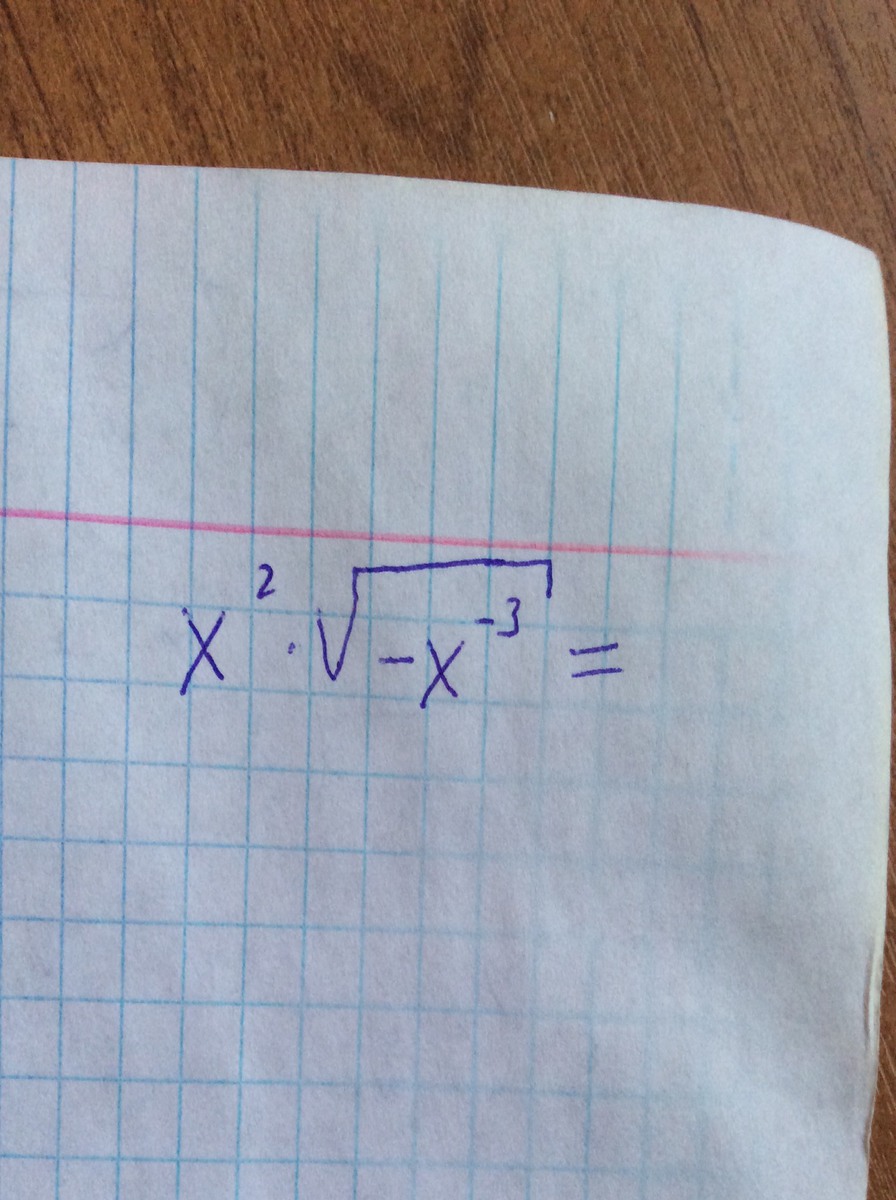 x² · √(-x⁻³) =